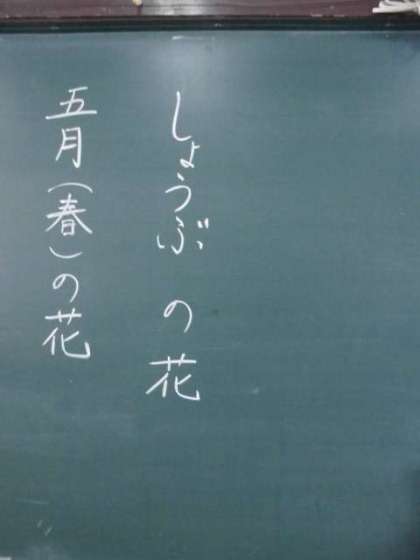 しょうぶ の花
五月(春)の花